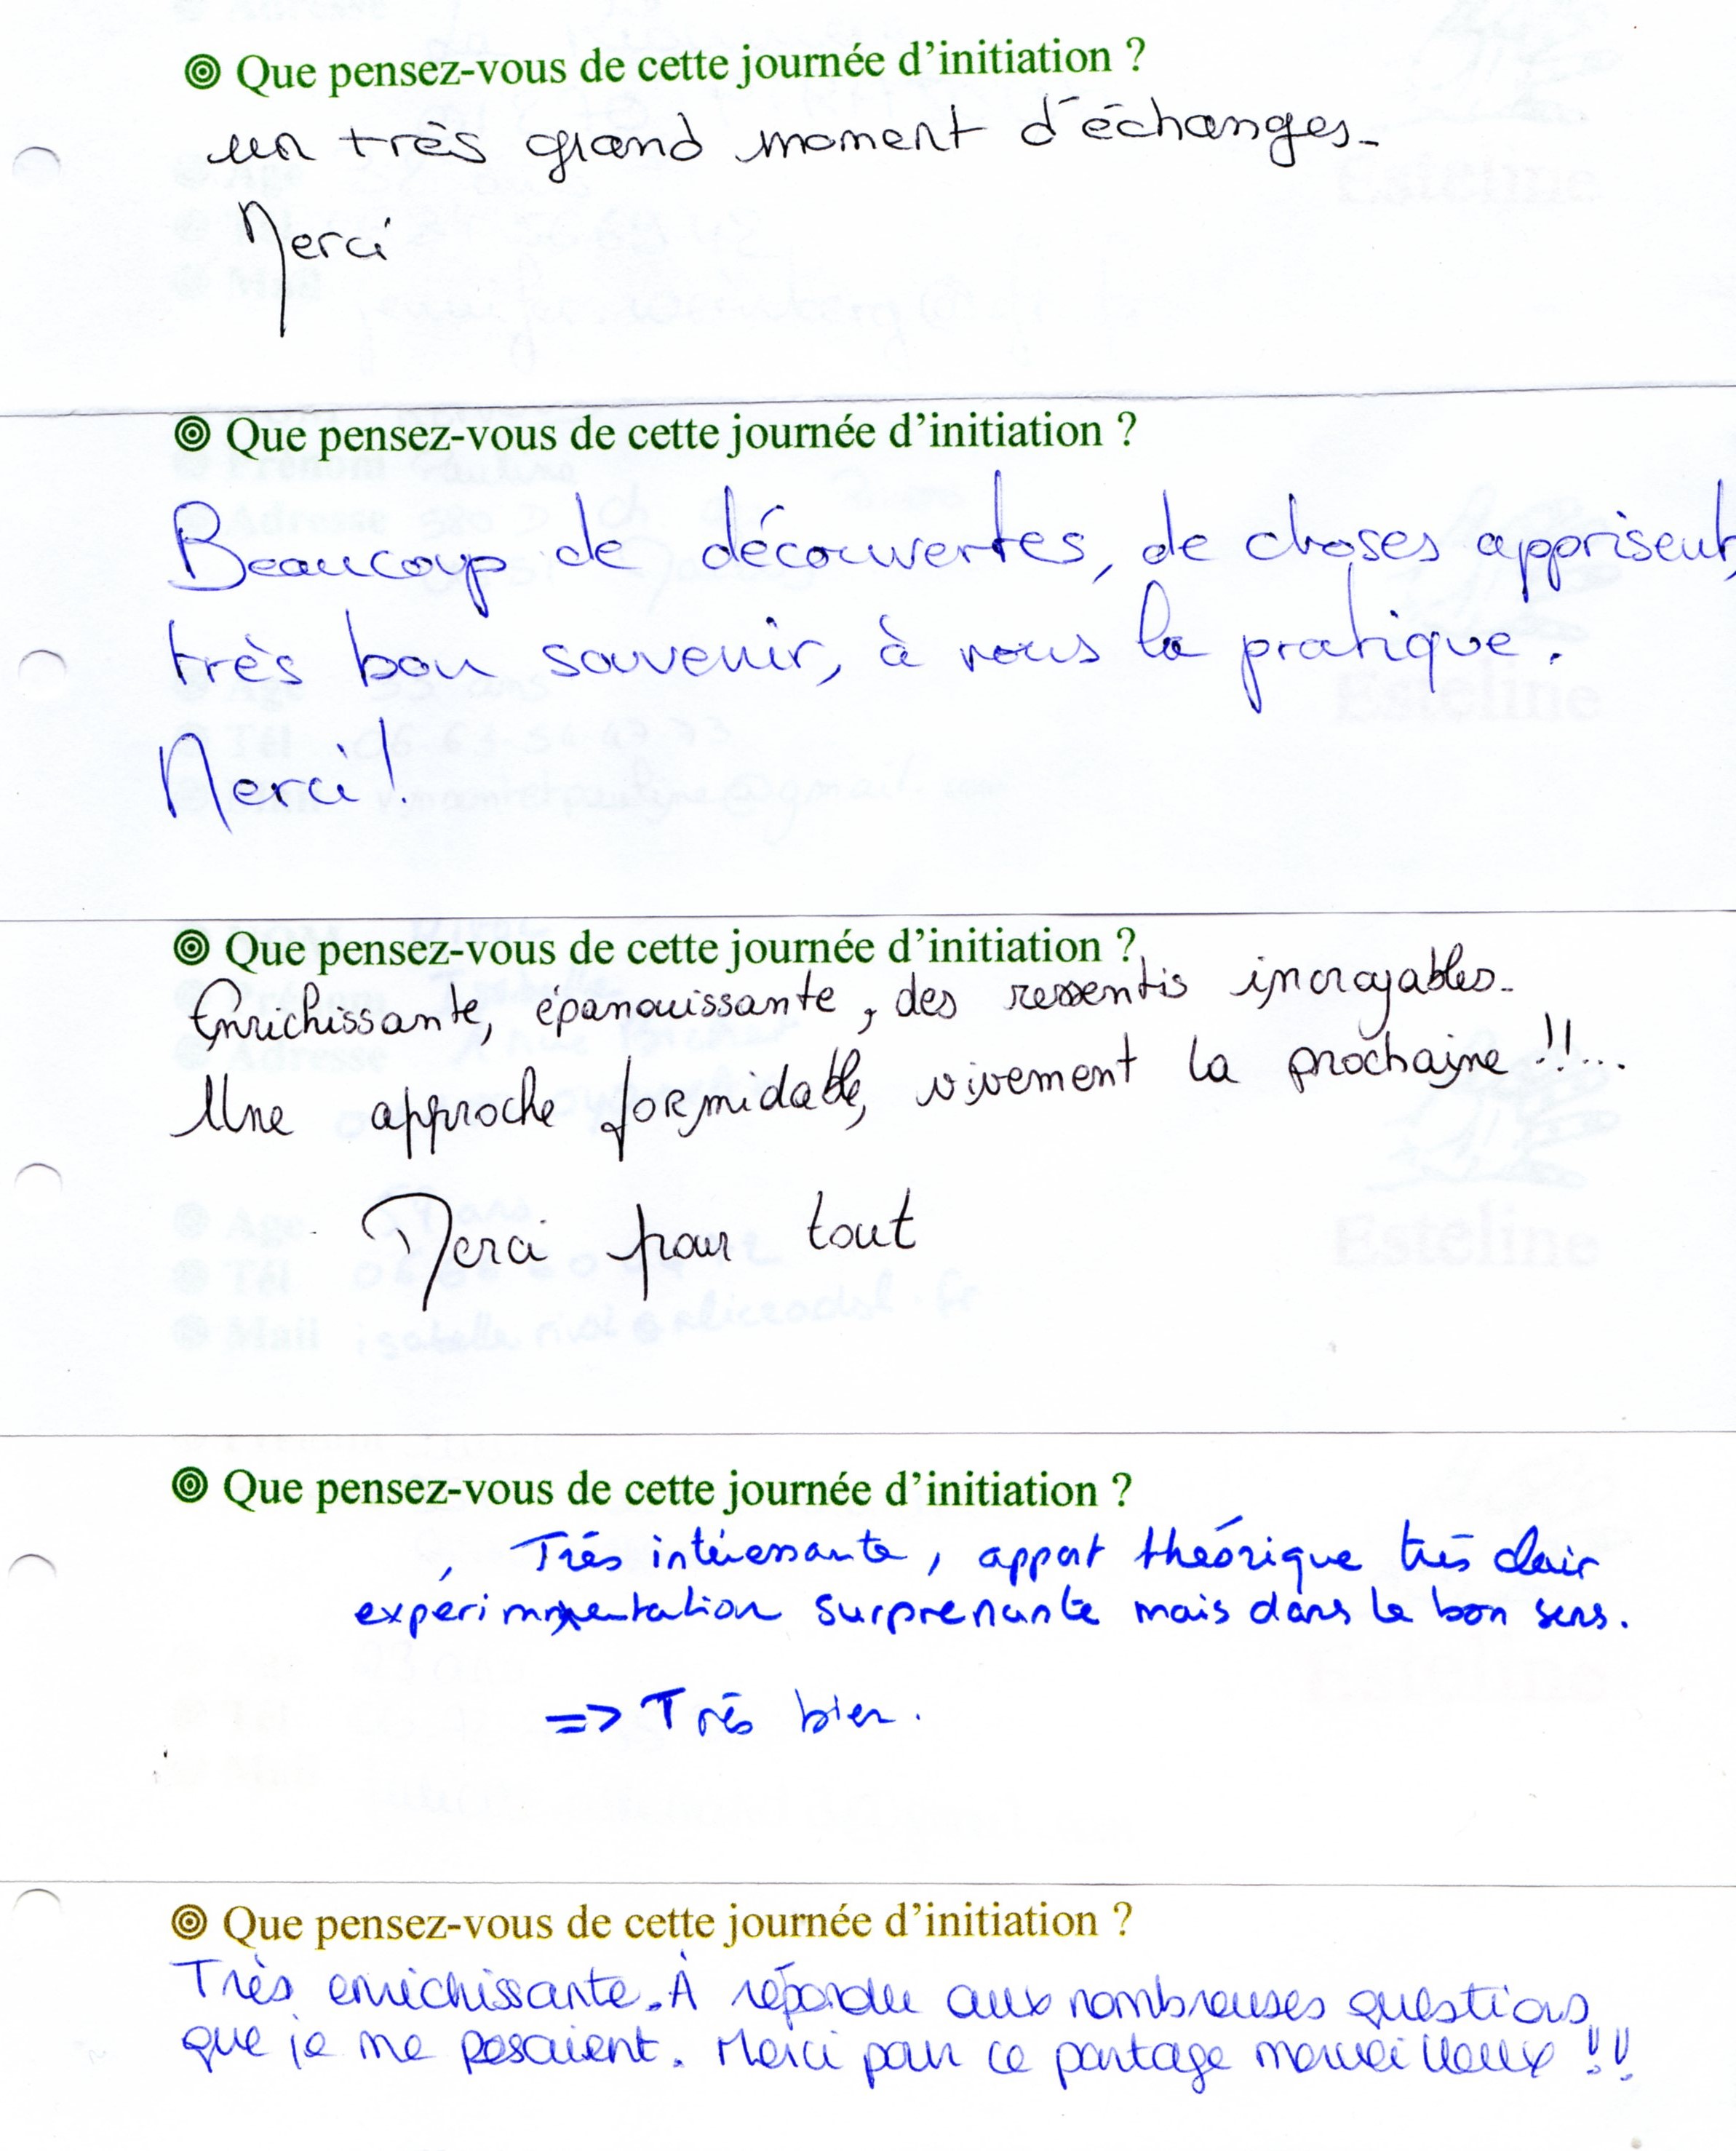 Que pensez-vous de cette journée d'initiation ?
un très grand moment d'échanges.
Merci
Que pensez-vous de cette journée d'initiation ?
Beaucoup de découvertes, de choses
très bon souvenir, à nous la pratique.
Merci!
Que pensez-vous de cette journée d'initiation ?
Enrichissante, épanouissante, des ressentis incroyables.
Une approche formidable, vivement la prochaine !!...
Merci pour tout
Esteline
Que pensez-vous de cette journée d'initiation ?
Très intéressante, apport théorique très clair
expérimentation surprenante mais dans le bon sens.
=> Très bien.
Que pensez-vous de cette journée d'initiation ?
Très enrichissante. À répondu aux nombreuses questions
que je me posaient. Merci pour ce partage merveilleux !!